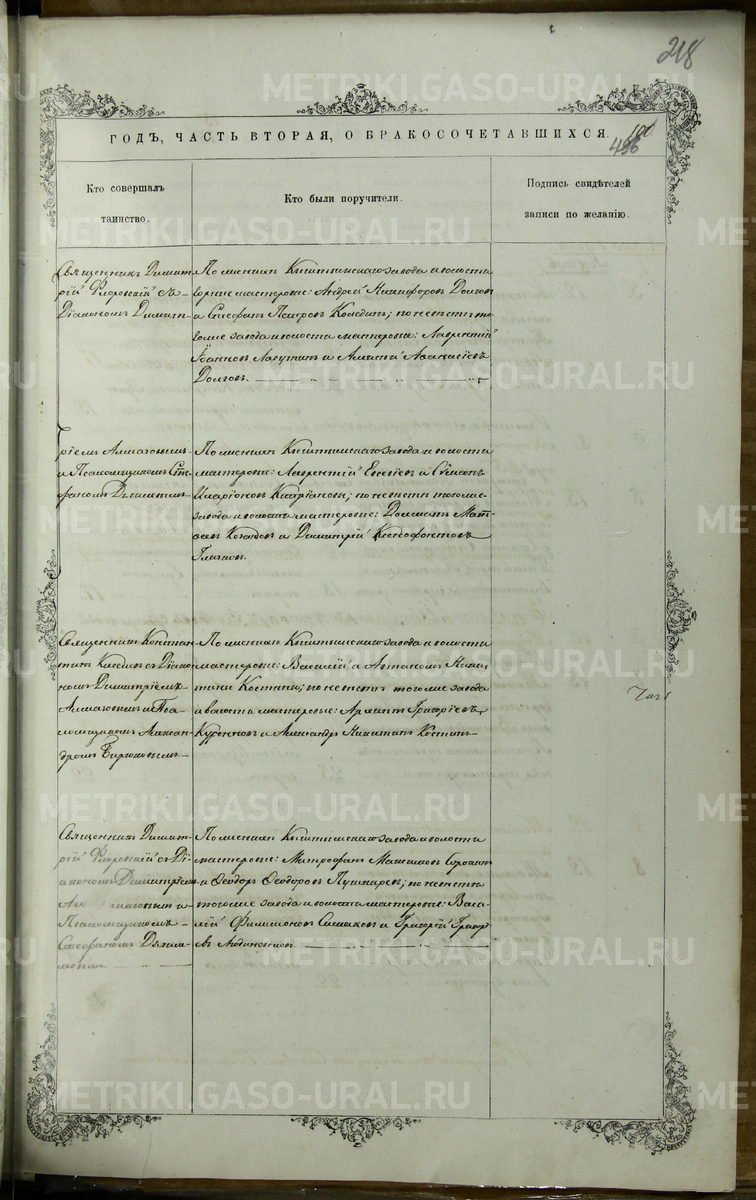 218
ГОДЪ, ЧАСТЬ ВТОРАЯ, О БРАКОСОЧЕТАВШИХСЯ.
496
Кто совершалъ
таинство.
Кто были поручители.
Подпись свидѣтелей
записи по желанію.
Священникъ Димит-
рій Флоровскій съ
Діакономъ Димит-
По женихѣ Кыштымскаго завода и волости
мастеровые: Андрей Никифоровъ Долгов
и Стефанъ Петровъ; по невѣстѣ то-
гоже завода и волости мастеровые: Лаврентій
Іоанновъ и Аванасіевъ
Долговъ.
ріемъ Алмазовымъ
и Псаломщикомъ Сте-
фаномъ
По женихѣ Кыштымскаго завода и волости
мастеровые: Лаврентій Евсеіевъ и Сѵмеонъ
Иларіоновъ; по невѣстѣ тогоже
завода и волости мастеровые: Мат-
и Димитрій Ксенофонтовъ
Глазков.
Священникъ Констан-
тинъ съ Діако-
номъ Димитріемъ
Алмазовымъ и Пса-
ломщикомъ Алексан-
дромъ Бирюковымъ
По женихѣ Кыштымскаго завода и волости
мастеровые: Василій и Автаномъ Ники-
тины Костины; по невѣстѣ тогоже завода
и волости мастеровые: Григоріевъ
и Александръ Никитинъ Костинъ
Священникъ Димит-
рій Флоровскій съ Ді-
акономъ Димитріемъ
Алмазовымъ и
Псаломщикомъ
Стефаномъ
По женихѣ Кыштымскаго завода и волости
мастеровые: Митрофанъ Максимовъ Сорокин
и Ѳеодоръ Ѳеодоровъ Пушкаревъ; по невѣстѣ
тогоже завода и волости мастеровые: Васи-
лій Филимоновъ и Григорій Григорі-
евъ
METRIKI.GASO-URAL.RU